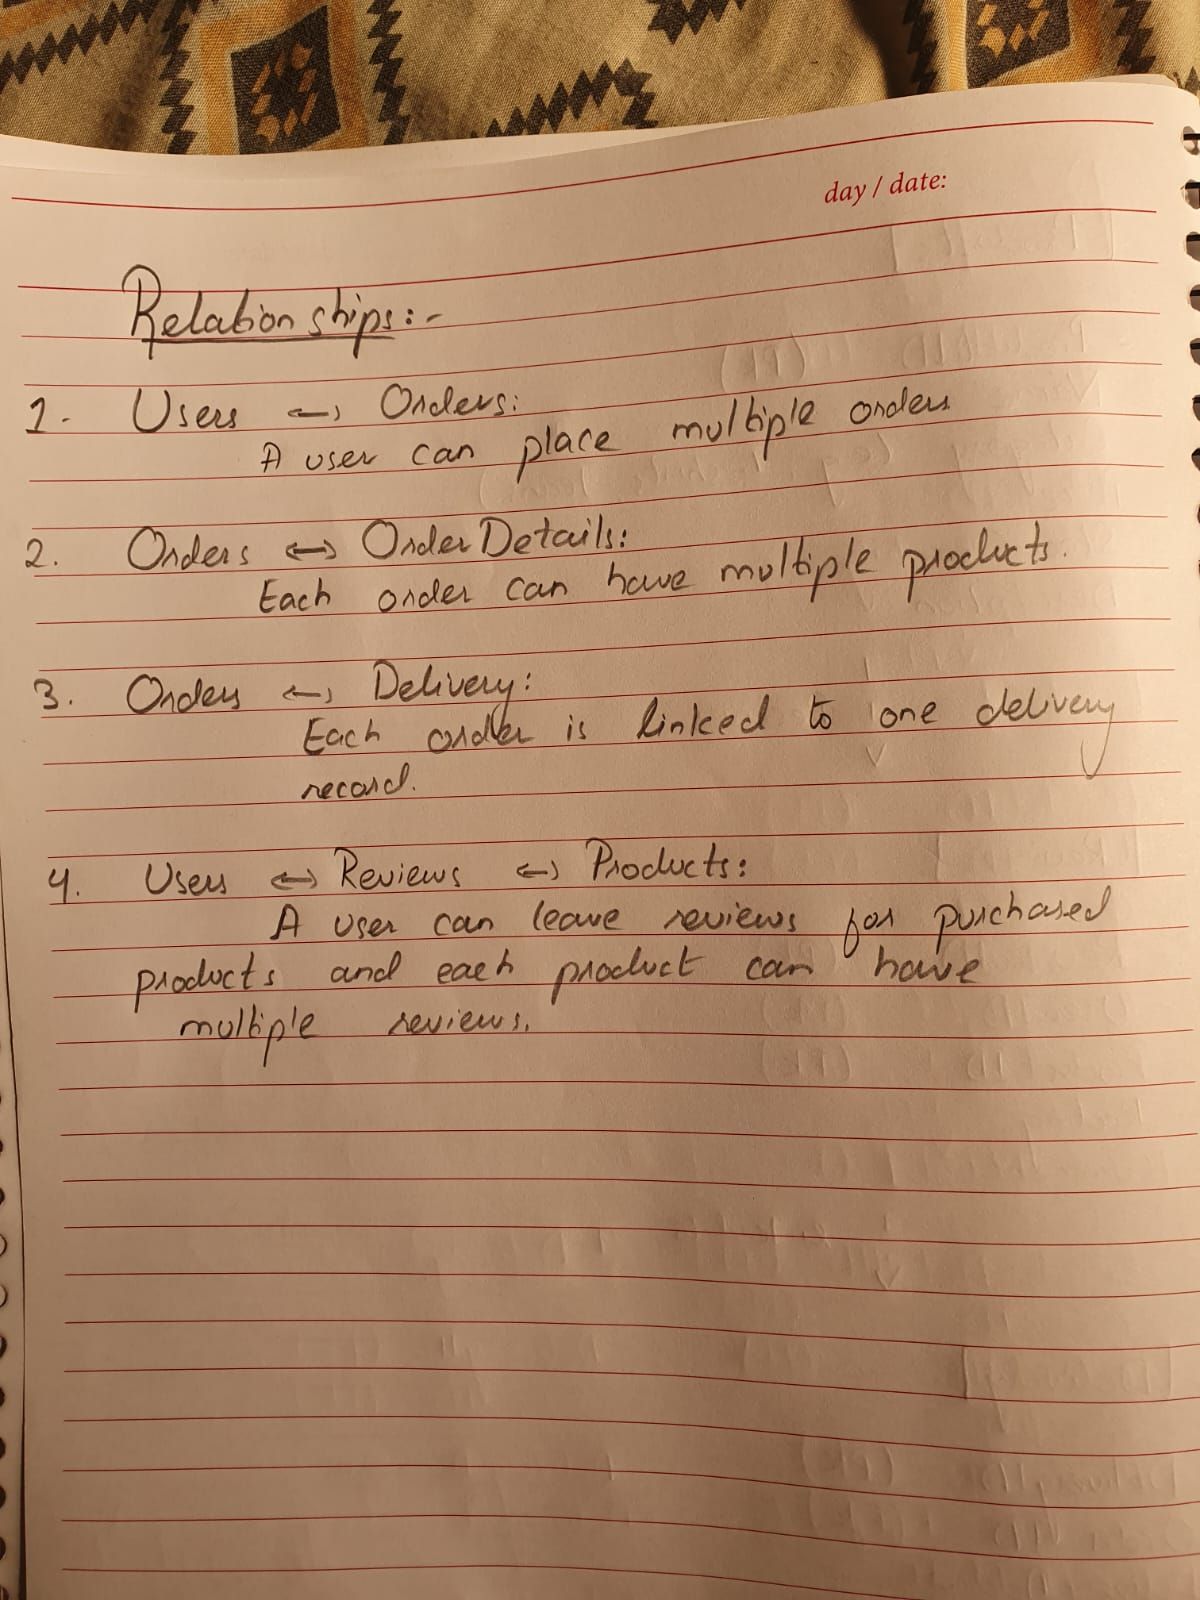 day / date:
Relationships:-
1. Users ↔ Orders:
A user can place multiple orders
2. Orders ↔ Order Details:
Each order can have multiple products.
3. Orders ↔ Delivery:
Each order is linked to one delivery
record.
4. Users ↔ Reviews ↔ Products:
A user can leave reviews for purchased
products and each product can have
multiple reviews.